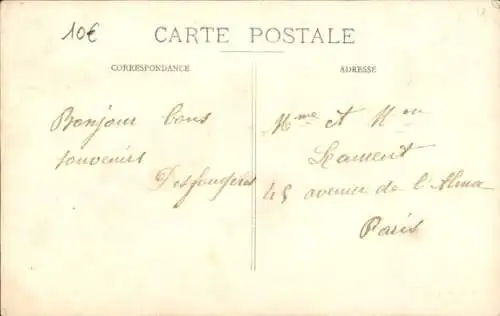 10€
CARTE POSTALE
CORRESPONDANCE
ADRESSE
Bonjour bons
souvenirs
Desfougères
Mme et Mon
Lament
45 avenue de l'Alma
Paris